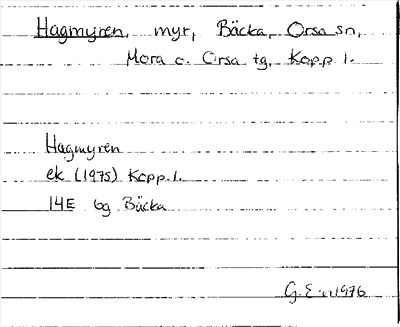 Hagmyren, myr, Bäcka, Orsa sn,
Mora o. Orsa tg, Kopp l.
Hagmyren
ek (1975) Kopp. l.
14E 6g Bäcka
G. E-n 1976